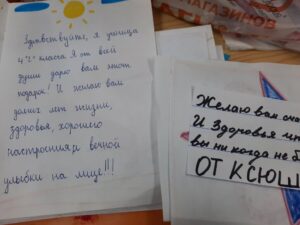 МАГАЗИНОВ
Здравствуйте, я ученица
4 "Г" класса Я от всей
души дарю вам этот
подарок! И желаю вам
долгих лет жизни,
здоровья, хорошего
настроения и вечной
улыбки на лице!!!
Желаю вам сча
И Здоровья
вы ни когда не б
ОТ КСЮШ